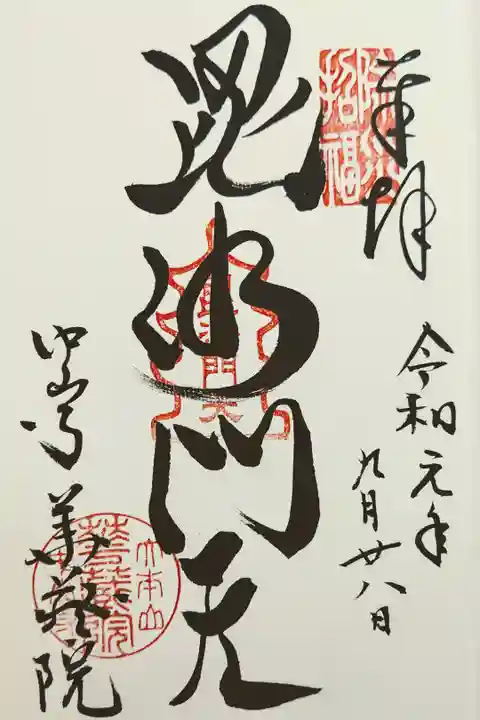 奉拝
除災
招福
令和元年
九月廿八日
毘沙門天
毘沙門天
中山寺 華蔵院
大本山
華蔵院